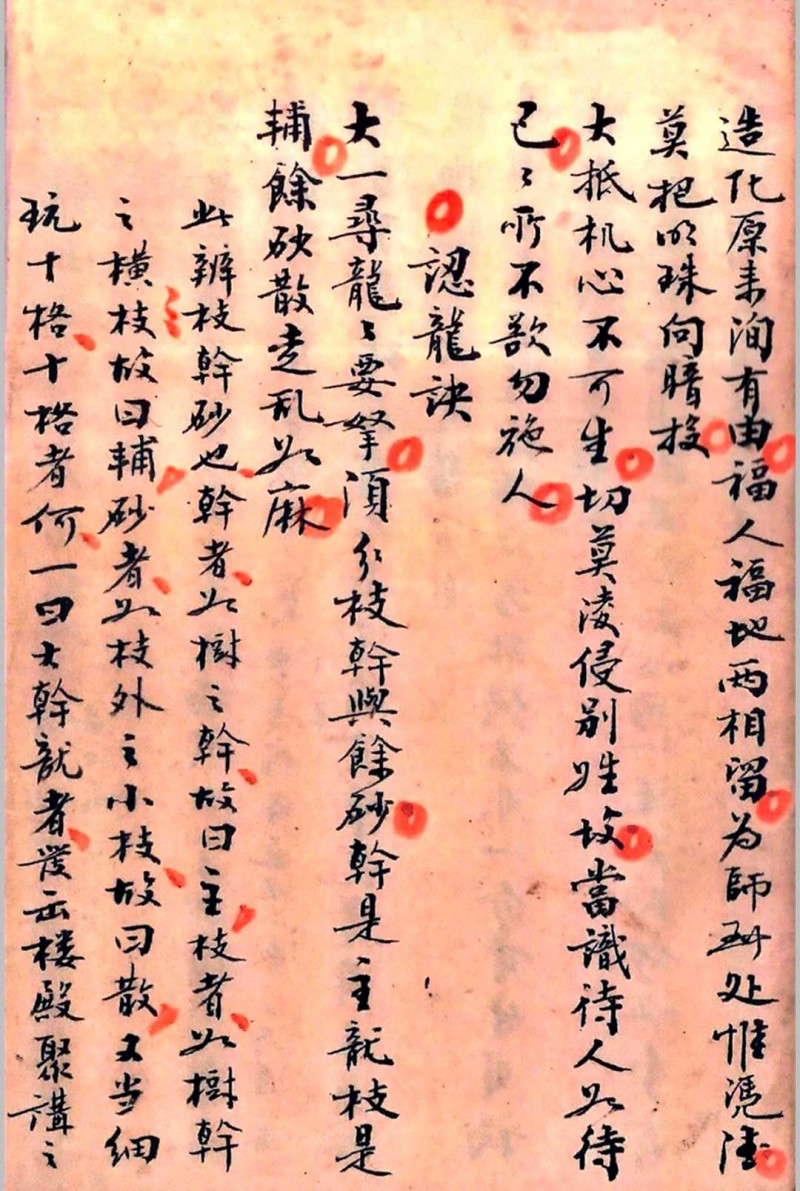 造化原来洵有由福人福地两相留为師到处惟凭德
莫把明珠向暗投
大抵机心不可生切莫凌侵别姓坟當識待人如待
己〻所不欲勿施人
認龍訣
大一尋龍〻要拏須分枝幹與餘砂幹是主龍枝是
輔餘砂散走乱如麻
此辦枝幹砂也幹者如樹之幹故曰主枝者如樹幹
之橫枝故曰輔砂者如枝外之小枝故曰散又当細
玩十格十格者何一曰大幹龍者發出楼殿聚講之